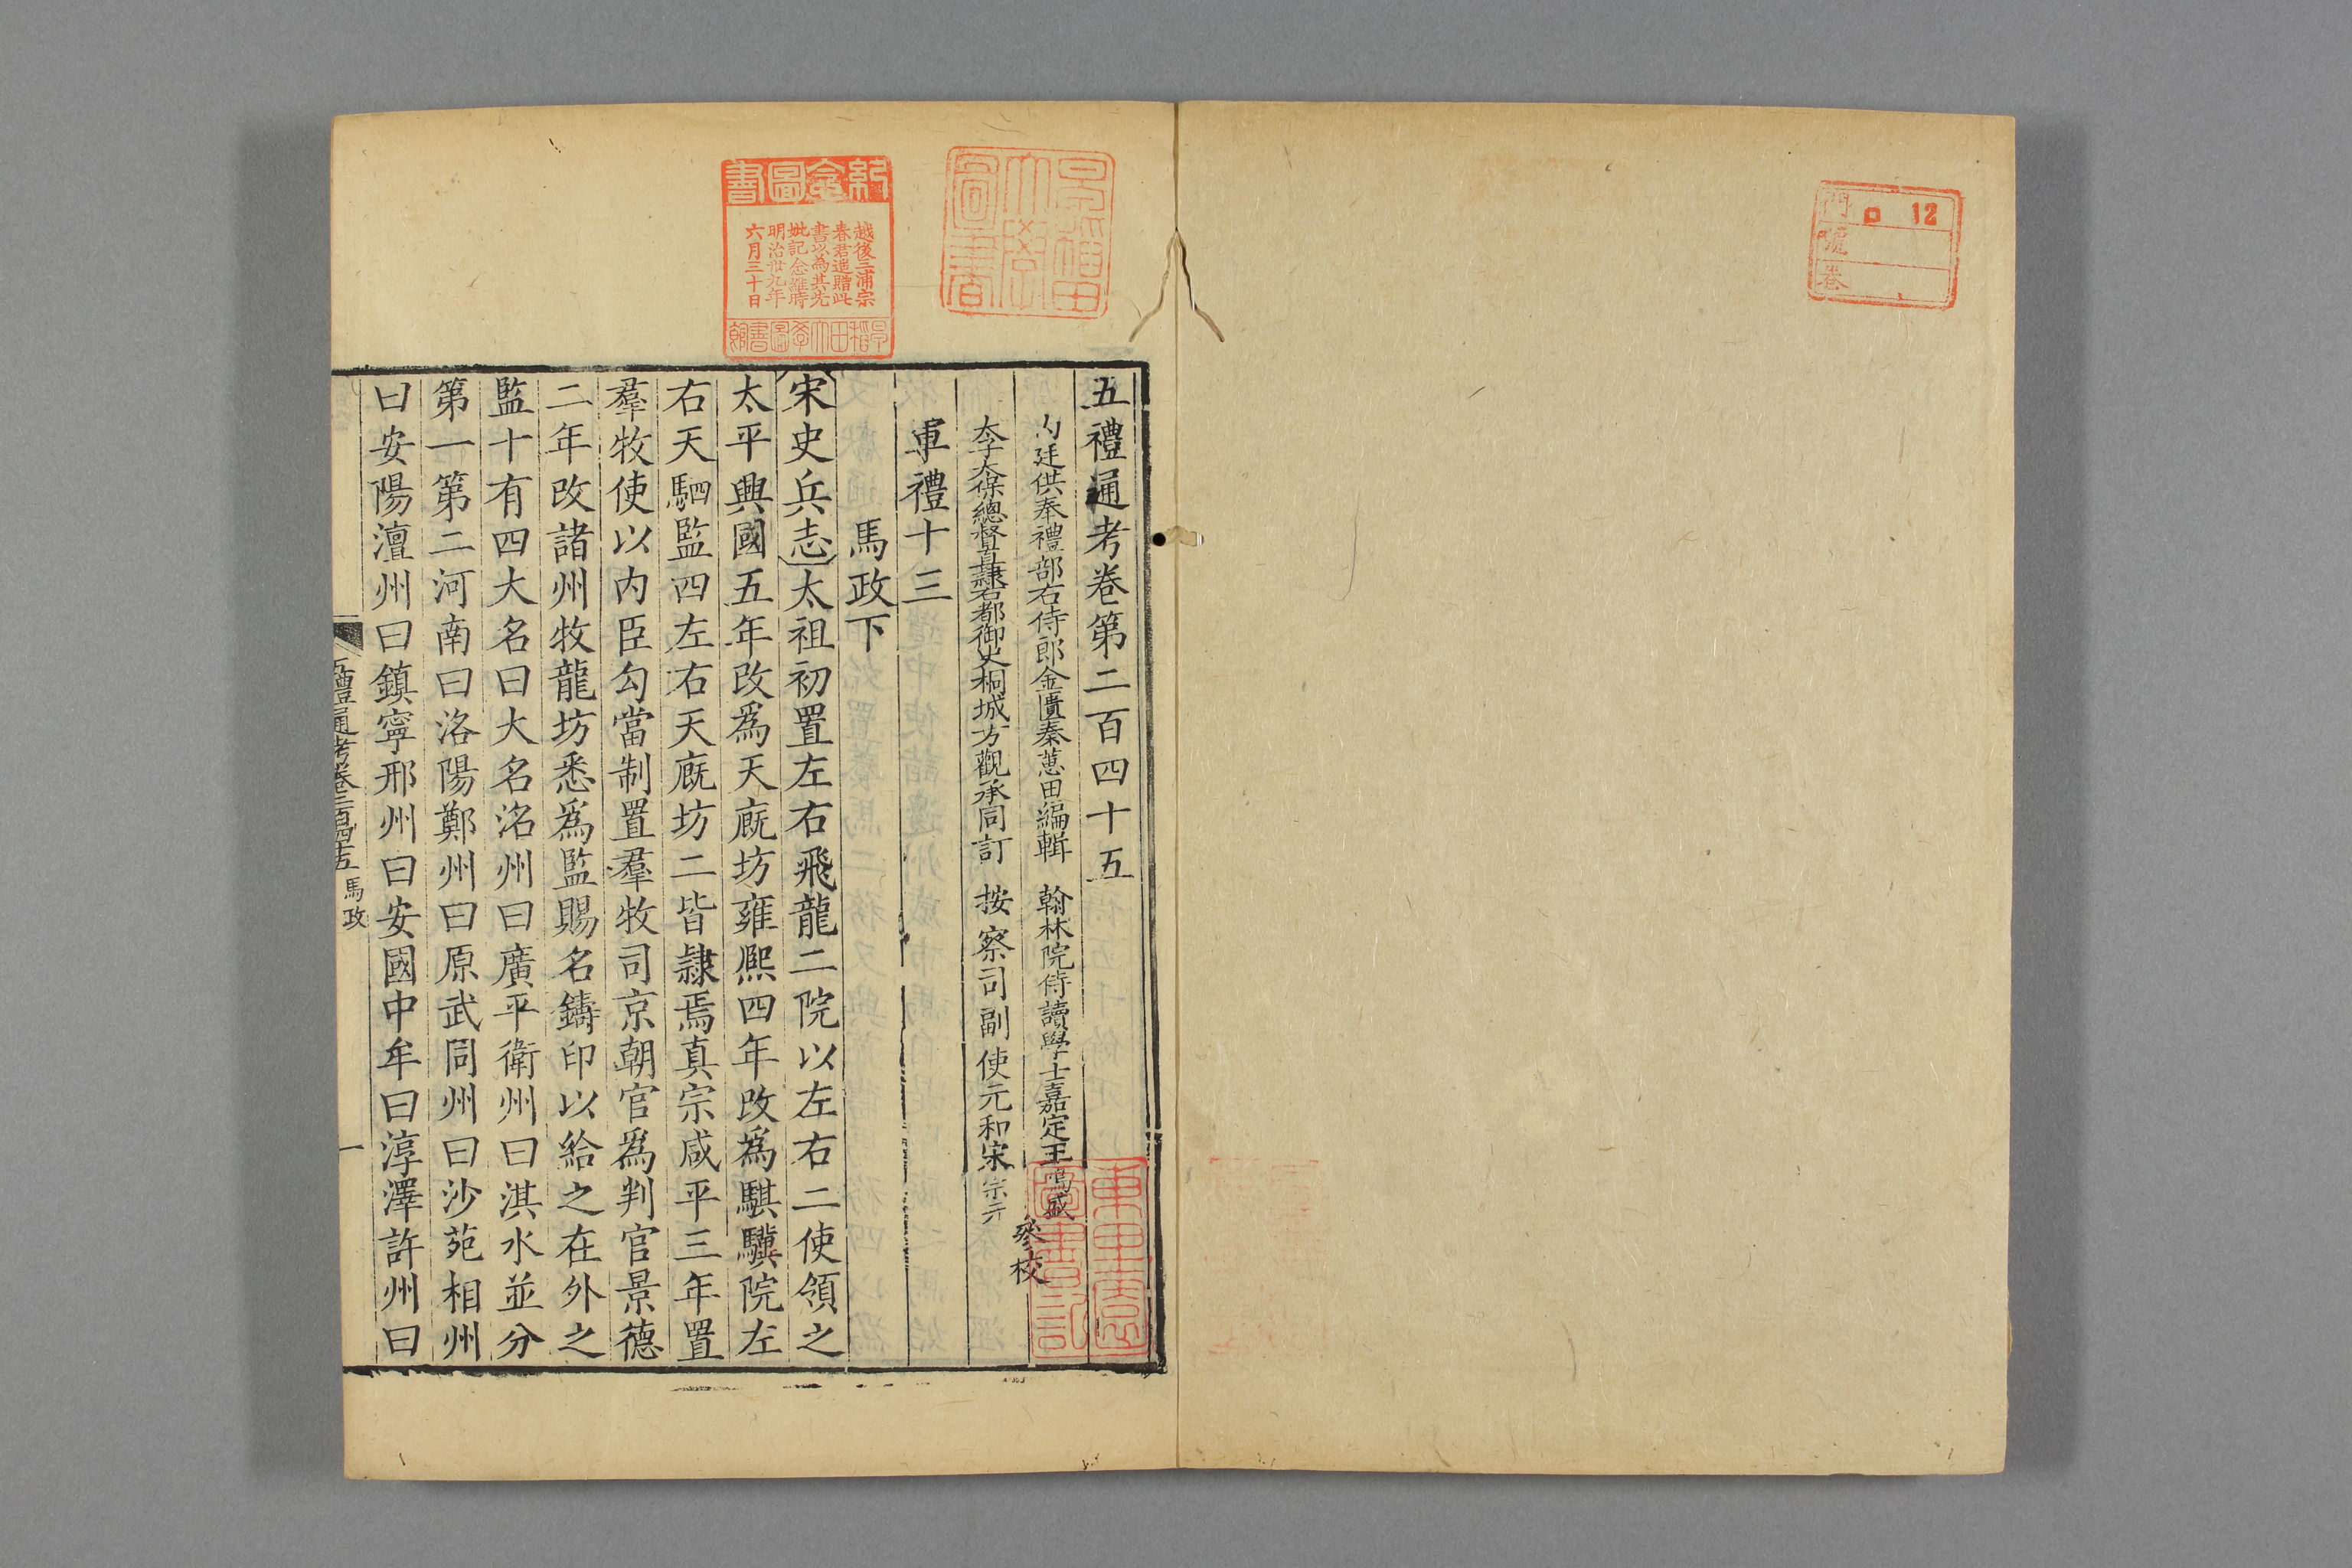 12
門
號
卷
早稲田大學圖書
紀念圖書
越後三浦宗
春君遥贈此
書以為其先
妣記念維時
明治卅九年
六月三十日
早稲田大學圖書館
五禮通考卷第二百四十五
內廷供奉禮部右侍郎金匱秦蕙田編輯 翰林院侍讀學士嘉定王鳴盛
太子太保總督直隸右都御史桐城方觀承同訂 按察司副使元和宋宗元
參校
軍禮十三
馬政下
宋史兵志太祖初置左右飛龍二院以左右二使領之
太平興國五年改爲天廐坊雍熙四年改爲騏驥院左
右天駟監四左右天廐坊二皆隸焉真宗咸平三年置
羣牧使以内臣勾當制置羣牧司京朝官爲判官景德
二年改諸州牧龍坊悉爲監賜名鑄印以給之在外之
監十有四大名曰大名洺州曰廣平衛州曰淇水並分
第一第二河南曰洛陽鄭州曰原武同州曰沙苑相州
曰安陽澶州曰鎮寧邢州曰安國中牟曰淳澤許州曰
五禮通考卷二百四十五 馬政
一